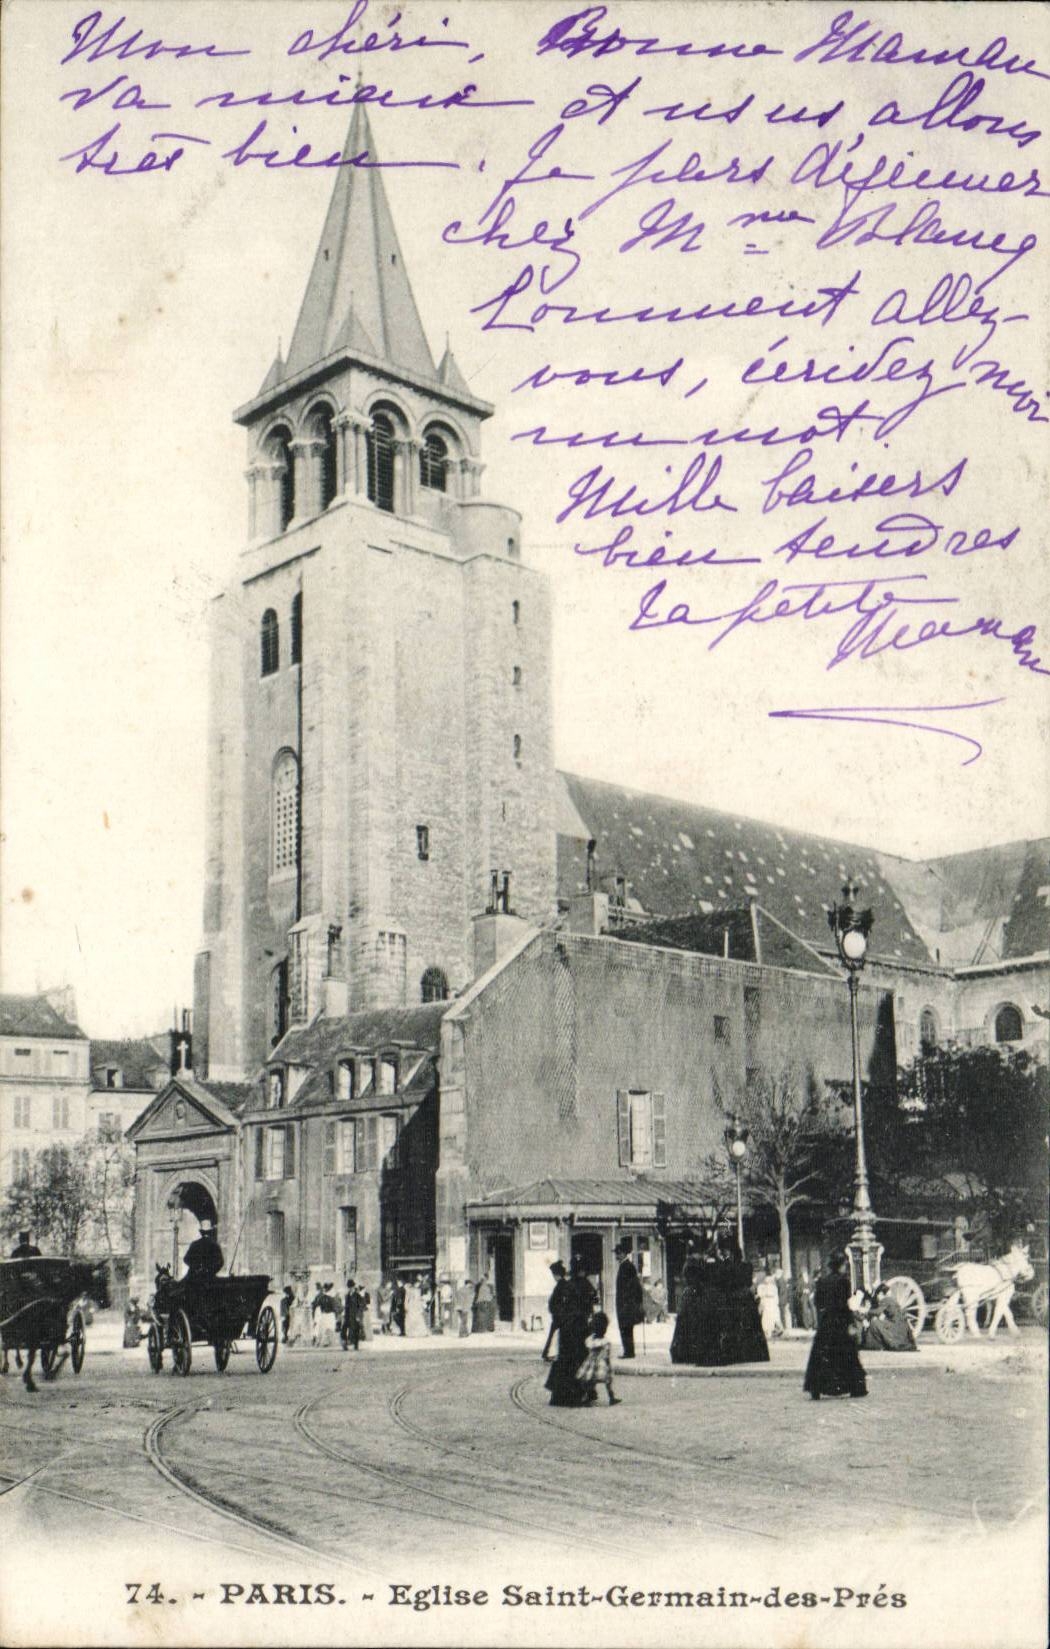 Mon chéri, Bonne Maman
va mieux et nous allons
très bien. Je pars déjeuner
chez Mme Blancq
Comment allez-
vous, écridez moi
un mot.
Mille baisers
bien tendres
ta petite
Maman
74. - PARIS. - Eglise Saint-Germain-des-Prés